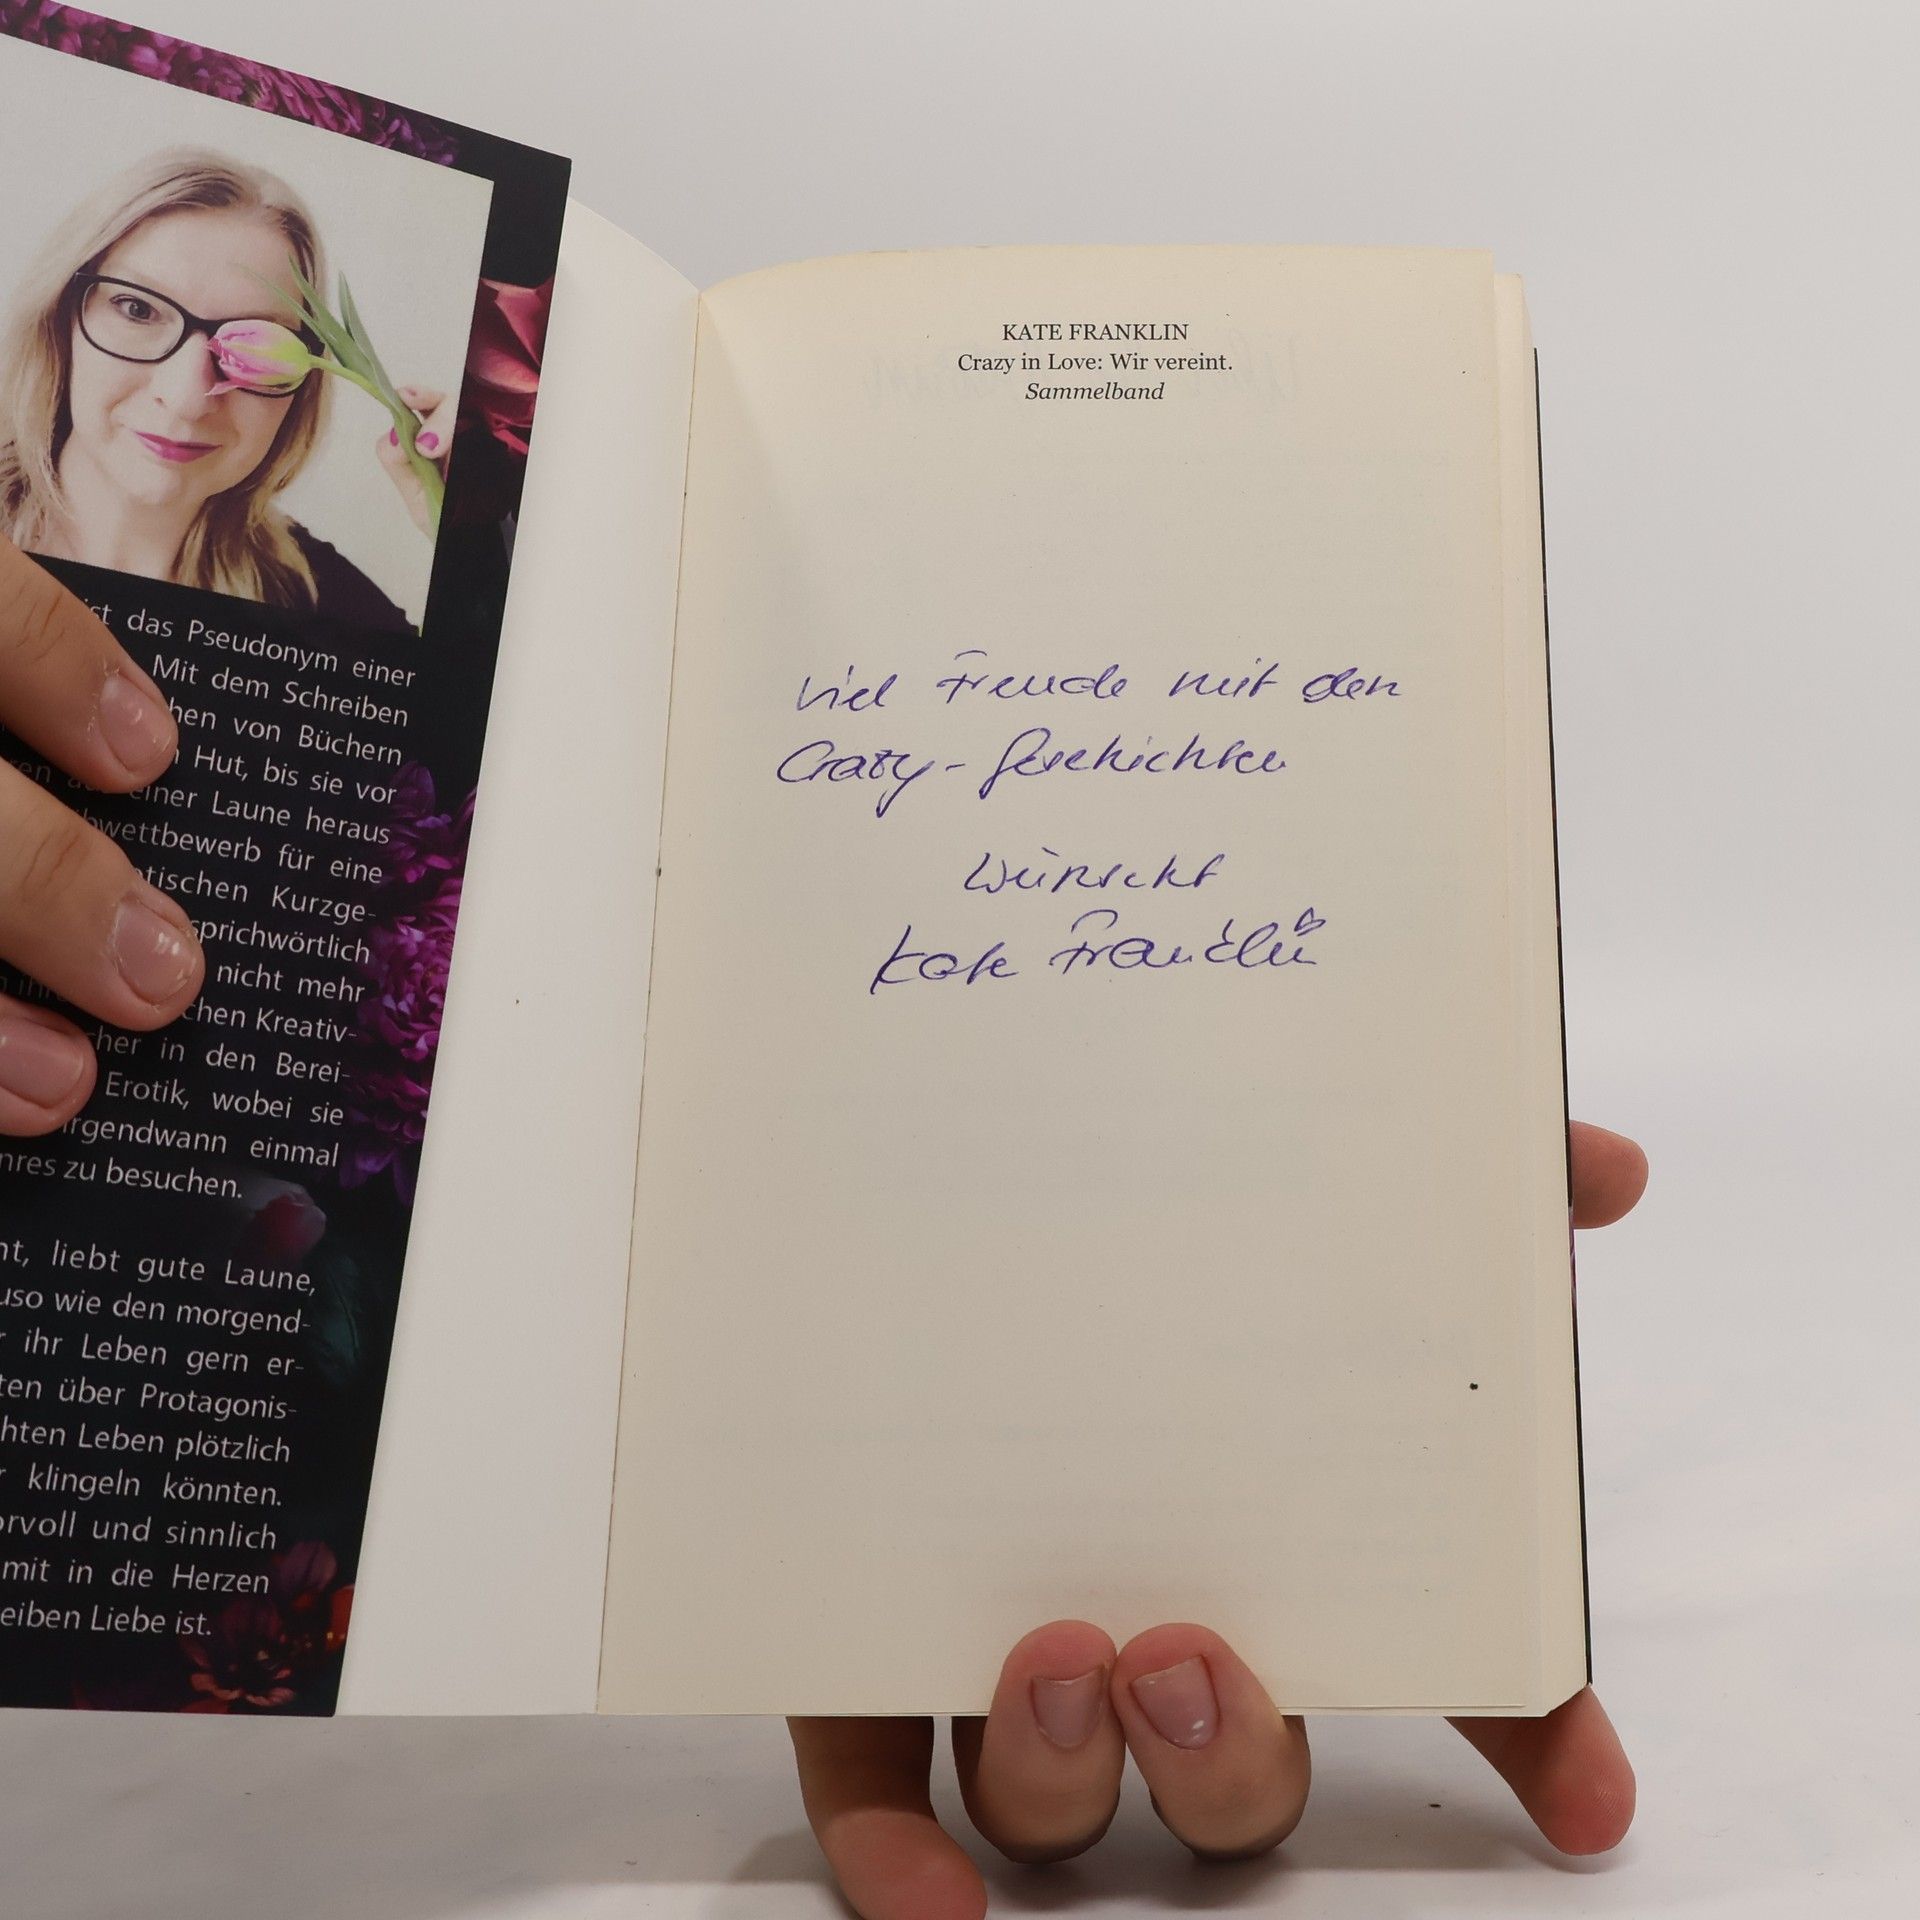 ist das Pseudonym einer
Mit dem Schreiben
hen von Büchern
Hut, bis sie vor
einer Laune heraus
bwettbewerb für eine
tischen Kurzge-
sprichwörtlich
nicht mehr
chen Kreativ-
cher in den Berei-
Erotik, wobei sie
irgendwann einmal
nres zu besuchen.
nt, liebt gute Laune,
uso wie den morgend-
r ihr Leben gern er-
ten über Protagonis-
hten Leben plötzlich
r klingeln könnten.
orvoll und sinnlich
mit in die Herzen
eiben Liebe ist.
KATE FRANKLIN
Crazy in Love: Wir vereint.
Sammelband
Viel Freude mit den
Crazy-Geschichten
wünscht
Kate Franklin